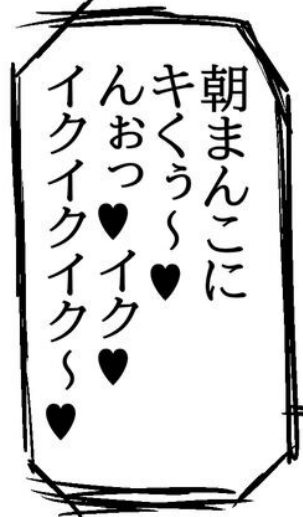 朝まんこに
キくぅ～♥
んぉっ♥イク♥
イクイクイク～♥